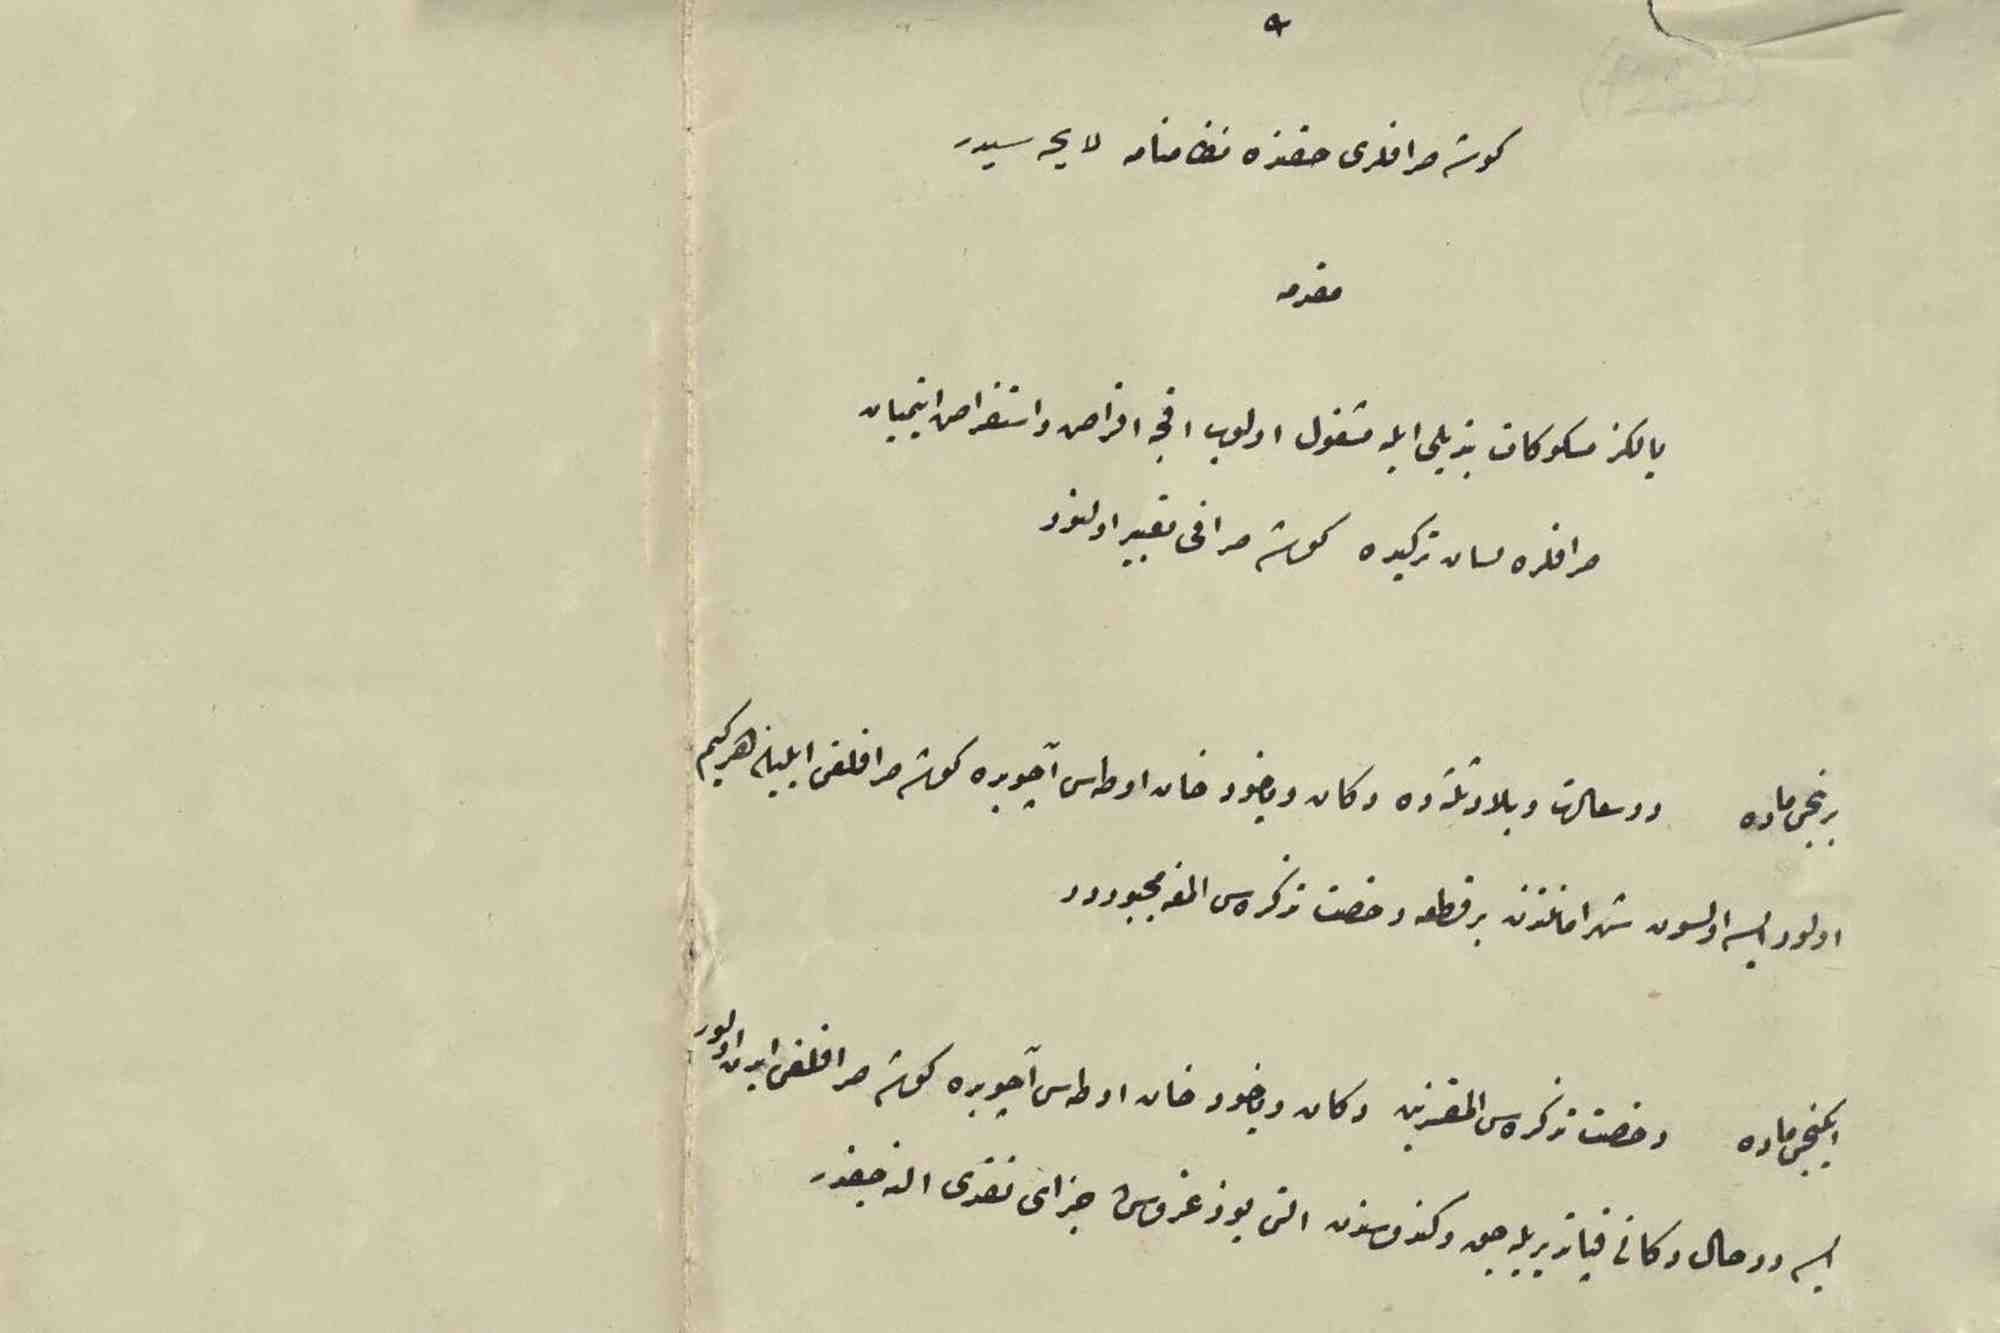 كوشه صرافلری حقنده نظامنامه لایحه سیدر
مقدمه
یالكز مسكوكات تبدیلی ایله مشغول اولوب اقچه اقراض و استقراض ایتمیان
صرافلره لسان تركیده كوشه صرافی تعبیر اولنور
برنجی ماده درسعادت و بلاد ثلثه ده دكان ویاخود خان اوطه سی آچوبده كوشه صرافلغی ایلیان هر كیم
اولور ایسه اولسون شهر امانتندن بر قطعه رخصت تذكره سی المغه مجبوردر
ایكنجی ماده رخصت تذكره سی المقسزین دكان ویاخود خان اوطه سی آچوبده كوشه صرافلغی ایدن اولور
ایسه درحال دكانی قپاتدیریله جق و كندوسندن التی یوز غروش جزای نقدی النه جقدر